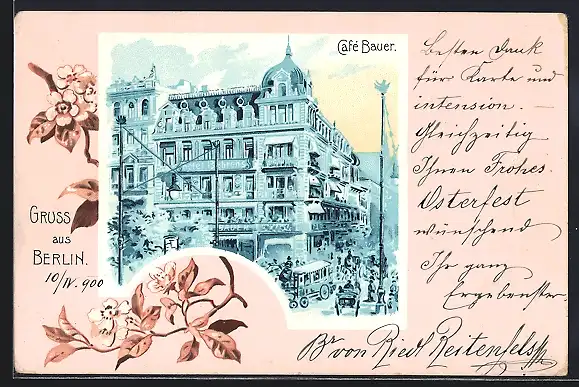 Café Bauer.
GRUSS
aus
BERLIN.
10/IV. 900
Besten Dank
für Karte und
intension. —
Gleichzeitig
Ihnen Frohes
Osterfest
wünschend
Ihr ganz
Ergebenster.
Br von Riedl Reitenfels